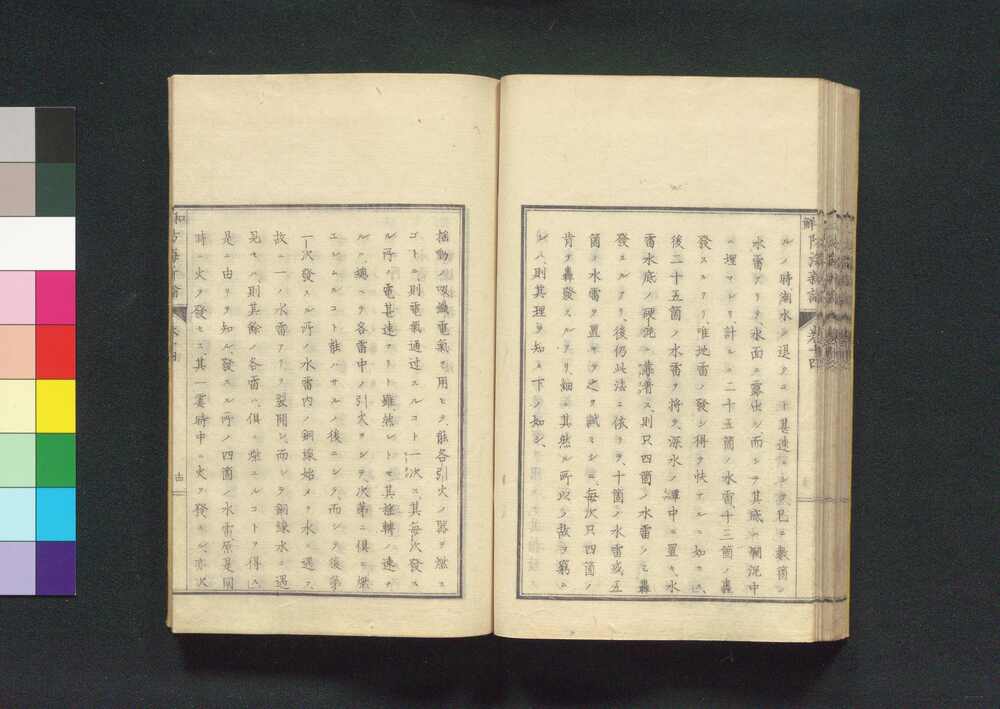 ルノ時潮水ノ退クコト甚速ニシテ已ニ數箇ノ
水雷アリテ水面ニ露出シ而シテ其底ハ爛泥中
ニ埋マレリ計ルニ二十五箇ノ水雷十三箇ノ轟
發スルアリ唯地雷ノ發シ得テ快ナルニ如カス
後二十五箇ノ水雷ヲ將テ深水ノ潭中ニ置キ水
雷水底ノ硬泥ニ靠着ス則只四箇ノ水雷ノミ轟
發スルアリ後仍此法ニ依テ十箇ノ水雷或五
箇ノ水雷ヲ置キテ之ヲ試ミシニ每次只四箇ノ
肯テ轟發スルアリ細ニ其然ル所以ノ故ヲ窮ム
レハ則其理ヲ知ル下ノ如シ
搖動ノ吸鐵電氣ヲ用ヒテ能各引火ノ器ヲ燃ス
コトハ則電氣通過スルコト一次ニ其每次發ス
ル所ノ電甚速ナリト雖然レトモ其搖轉ノ速ナ
ルハ總ヘテ各雷中ノ引火ヲシテ次第ニ俱ニ燃
エシムルコト能ハサルノ後ニシテ而シテ後第
一次發スル所ノ水雷內ノ銅線始メテ水ニ遇フ
故ニ一ノ水雷アリテ裂開シ而シテ銅線水ニ遇
見セハ則其餘ノ各雷ハ俱ニ燃エルコトヲ得ス
是ニ由リテ知ル發スル所ノ四箇ノ水雷原是同
時ニ火ヲ發セス其一霎時中ニ火ヲ發スルハ亦次
防海新論
卷十四